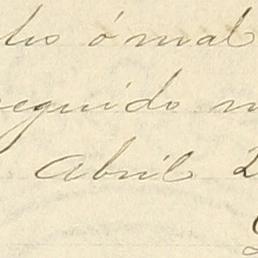 ó mal
seguido
Abril 2